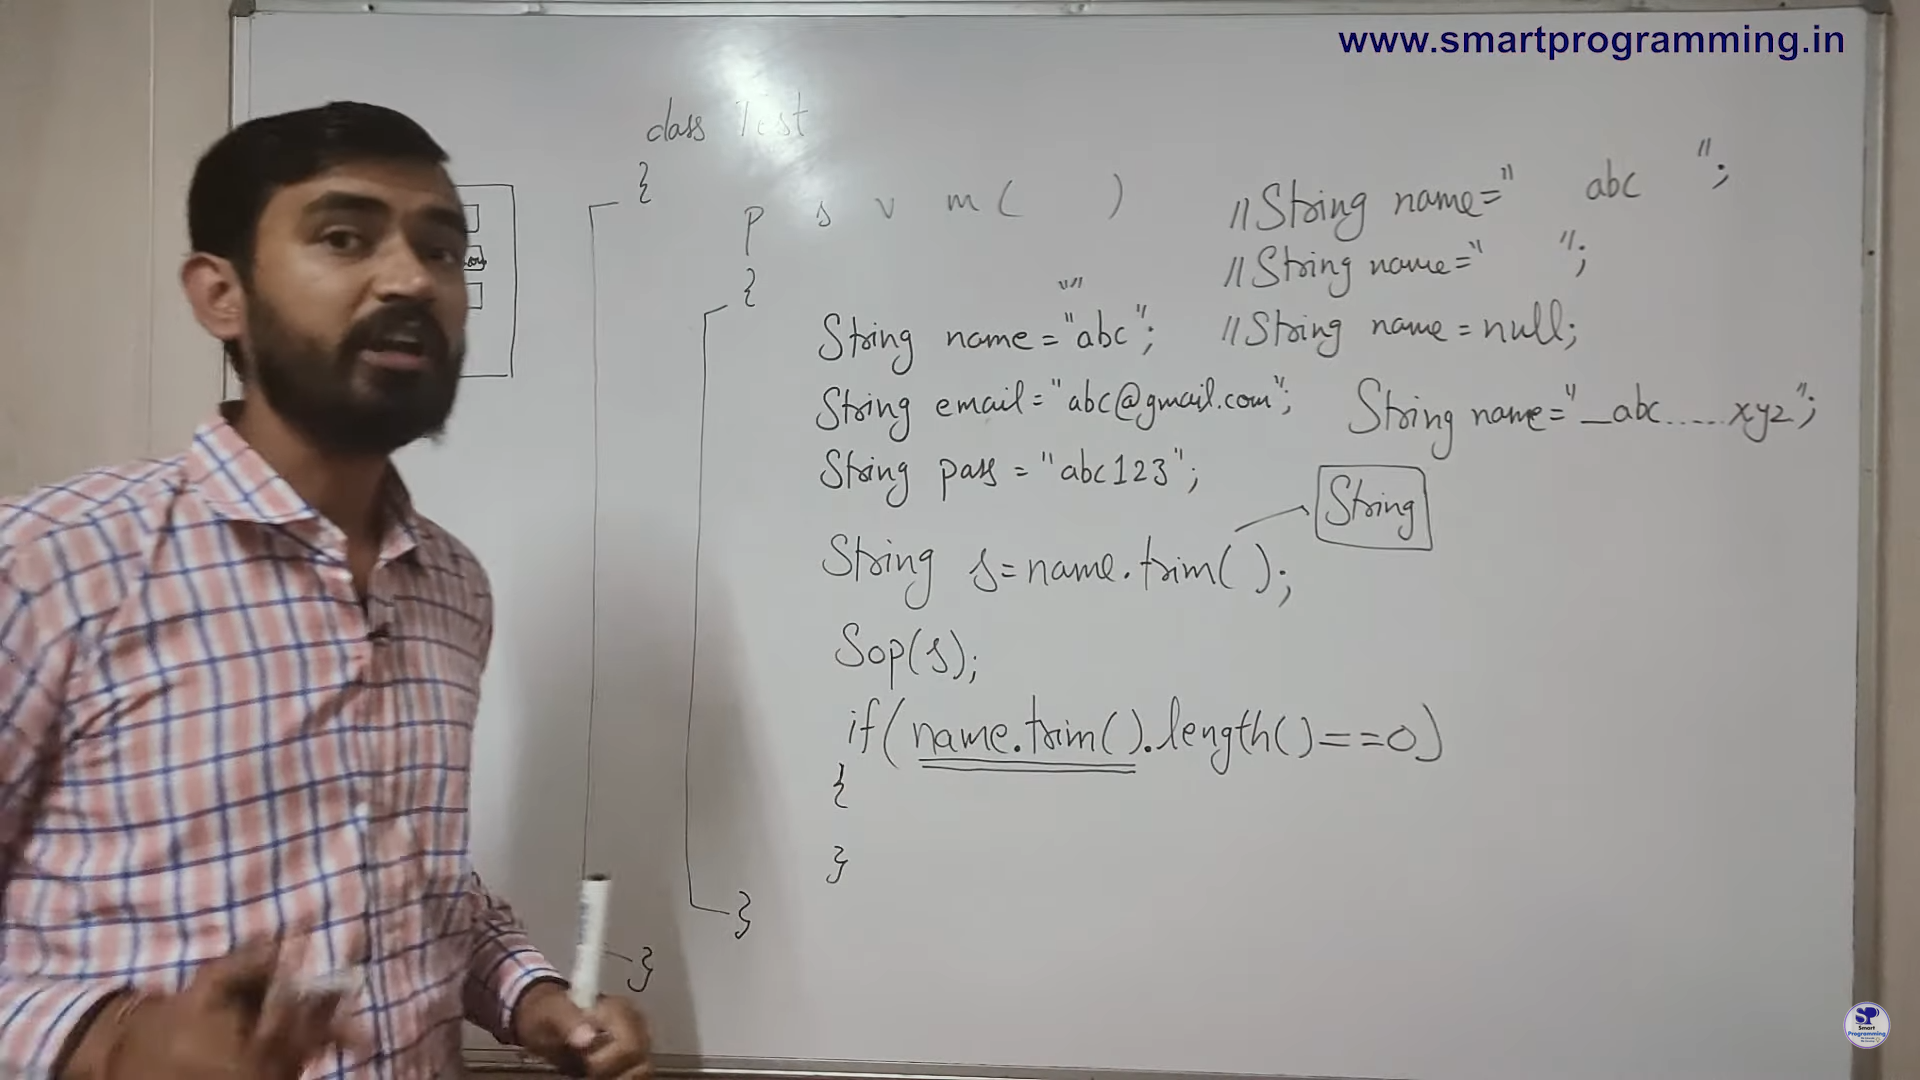 www.smartprogramming.in
class Test
{
p s v m ( )
{
""
String name = "abc";
String email = "abc@gmail.com";
String pass = "abc123";
String s = name.trim( );
Sop(s);
if( name.trim().length()==0)
{
}
}
}
//String name=" abc ";
//String name=" ";
//String name = null;
String name="_abc.....xyz";
String
SP
Smart
Programming